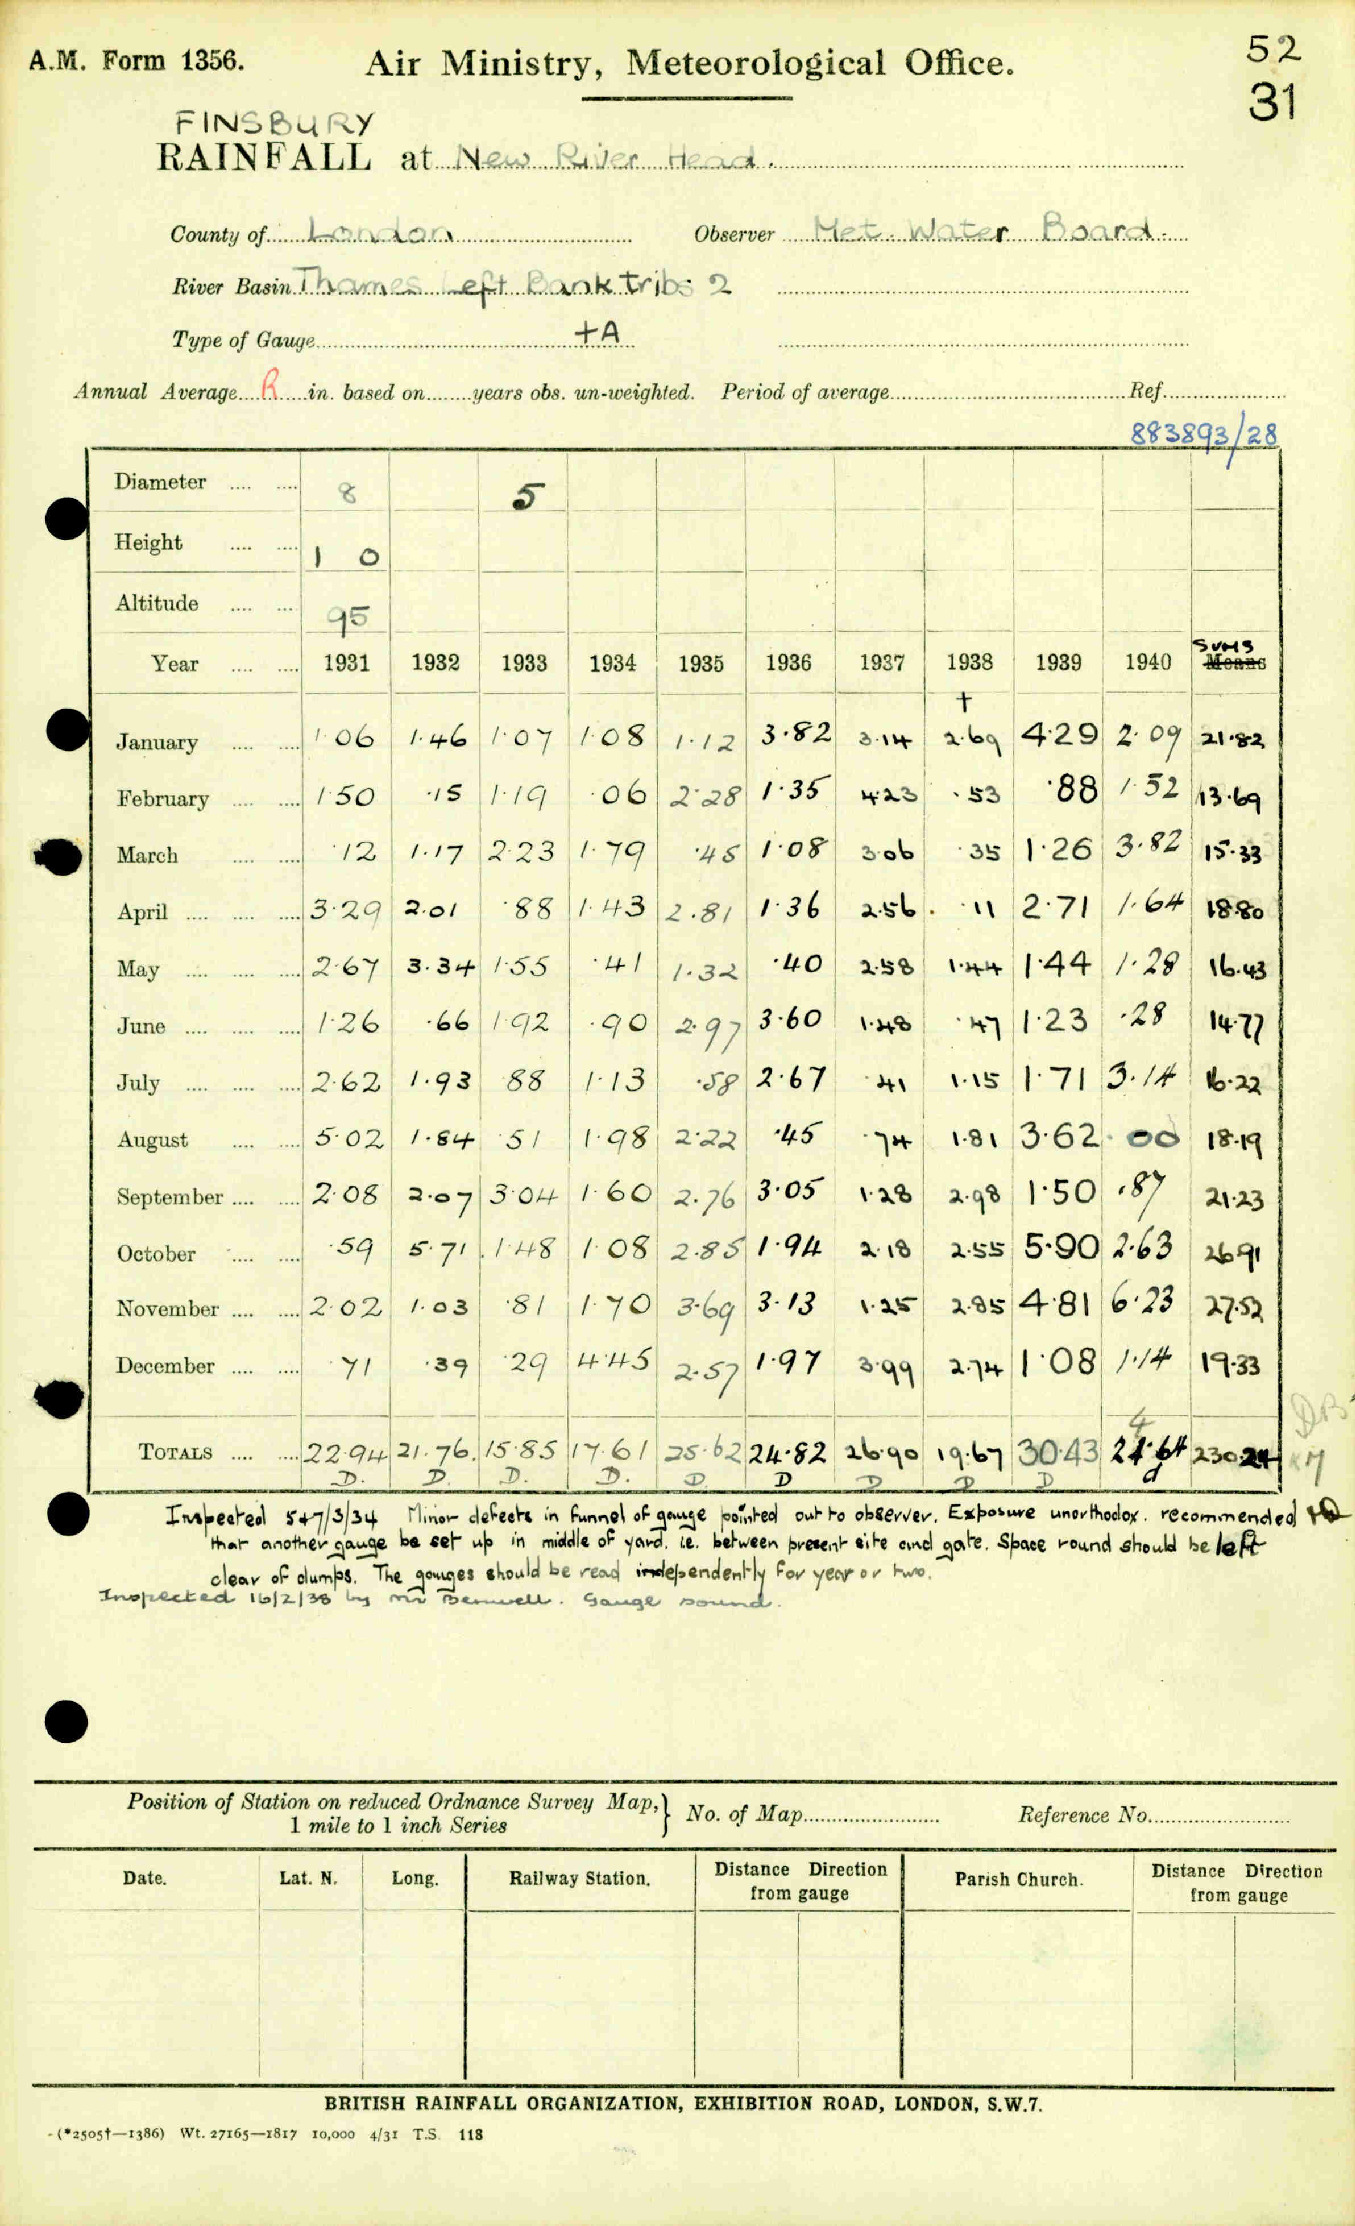 A.M. Form 1356. Air Ministry, Meteorological Office. 52
31
FINSBURY
RAINFALL at New River Head.
County of London Observer Met. Water Board.
River Basin Thames Left Bank tribs 2
Type of Gauge +A
Annual Average R in. based on years obs. un-weighted. Period of average Ref.
883893/28
Diameter 8 5
Height 1 0
Altitude 95
Year 1931 1932 1933 1934 1935 1936 1937 1938 1939 1940 Sums Means
†
January 1.06 1.46 1.07 1.08 1.12 3.82 3.14 2.69 4.29 2.09 21.82
February 1.50 .15 1.19 .06 2.28 1.35 4.23 .53 .88 1.52 13.69
March .12 1.17 2.23 1.79 .45 1.08 3.06 .35 1.26 3.82 15.33
April 3.29 2.01 .88 1.43 2.81 1.36 2.56 .11 2.71 1.64 18.80
May 2.67 3.34 1.55 .41 1.32 .40 2.58 1.44 1.44 1.28 16.43
June 1.26 .66 1.92 .90 2.97 3.60 1.48 .47 1.23 .28 14.77
July 2.62 1.93 .88 1.13 .58 2.67 .41 1.15 1.71 3.14 16.22
August 5.02 1.84 .51 1.98 2.22 .45 .74 1.81 3.62 .00 18.19
September 2.08 2.07 3.04 1.60 2.76 3.05 1.28 2.98 1.50 .87 21.23
October .59 5.71 1.48 1.08 2.85 1.94 2.18 2.55 5.90 2.63 26.91
November 2.02 1.03 .81 1.70 3.69 3.13 1.25 2.85 4.81 6.23 27.52
December .71 .39 .29 4.45 2.57 1.97 3.99 2.74 1.08 1.14 19.33
Totals 22.94 21.76 15.85 17.61 25.62 24.82 26.90 19.67 30.43 24.64 230.24
D. D. D. D. D. D D D D d
Inspected 5+7/3/34 Minor defects in funnel of gauge pointed out to observer. Exposure unorthodox. recommended
that another gauge be set up in middle of yard. i.e. between present site and gate. Space round should be left
clear of dumps. The gauges should be read independently for year or two.
Inspected 16/2/38 by Mr Gauge sound.
Position of Station on reduced Ordnance Survey Map, } No. of Map Reference No.
1 mile to 1 inch Series
Date. Lat. N. Long. Railway Station. Distance Direction from gauge Parish Church. Distance Direction from gauge
BRITISH RAINFALL ORGANIZATION, EXHIBITION ROAD, LONDON, S.W.7.
(*2505†—1386) Wt. 27165—1817 10,000 4/31 T.S. 118